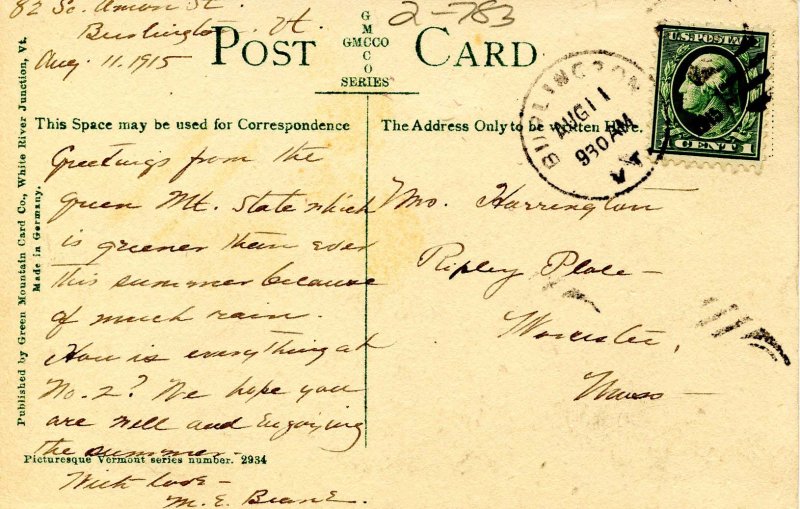 82 So. Union St.
Burlington, Vt.
Aug. 11, 1915
2-783
POST CARD
GMCCO
GMCCO
SERIES
BURLINGTON
AUG 11
930 AM
VT.
U.S. POSTAGE
1 CENT 1
This Space may be used for Correspondence
The Address Only to be Written Here.
Greetings from the
Green Mt. State which
is greener than ever
this summer because
of much rain.
How is everything at
No. 2? We hope you
are well and enjoying
the summer—
With love—
M. E.
Harrington
Ripley Place—
Worcester,
Mass—
Picturesque Vermont series number. 2934
Published by Green Mountain Card Co., White River Junction, Vt.
Made in Germany.